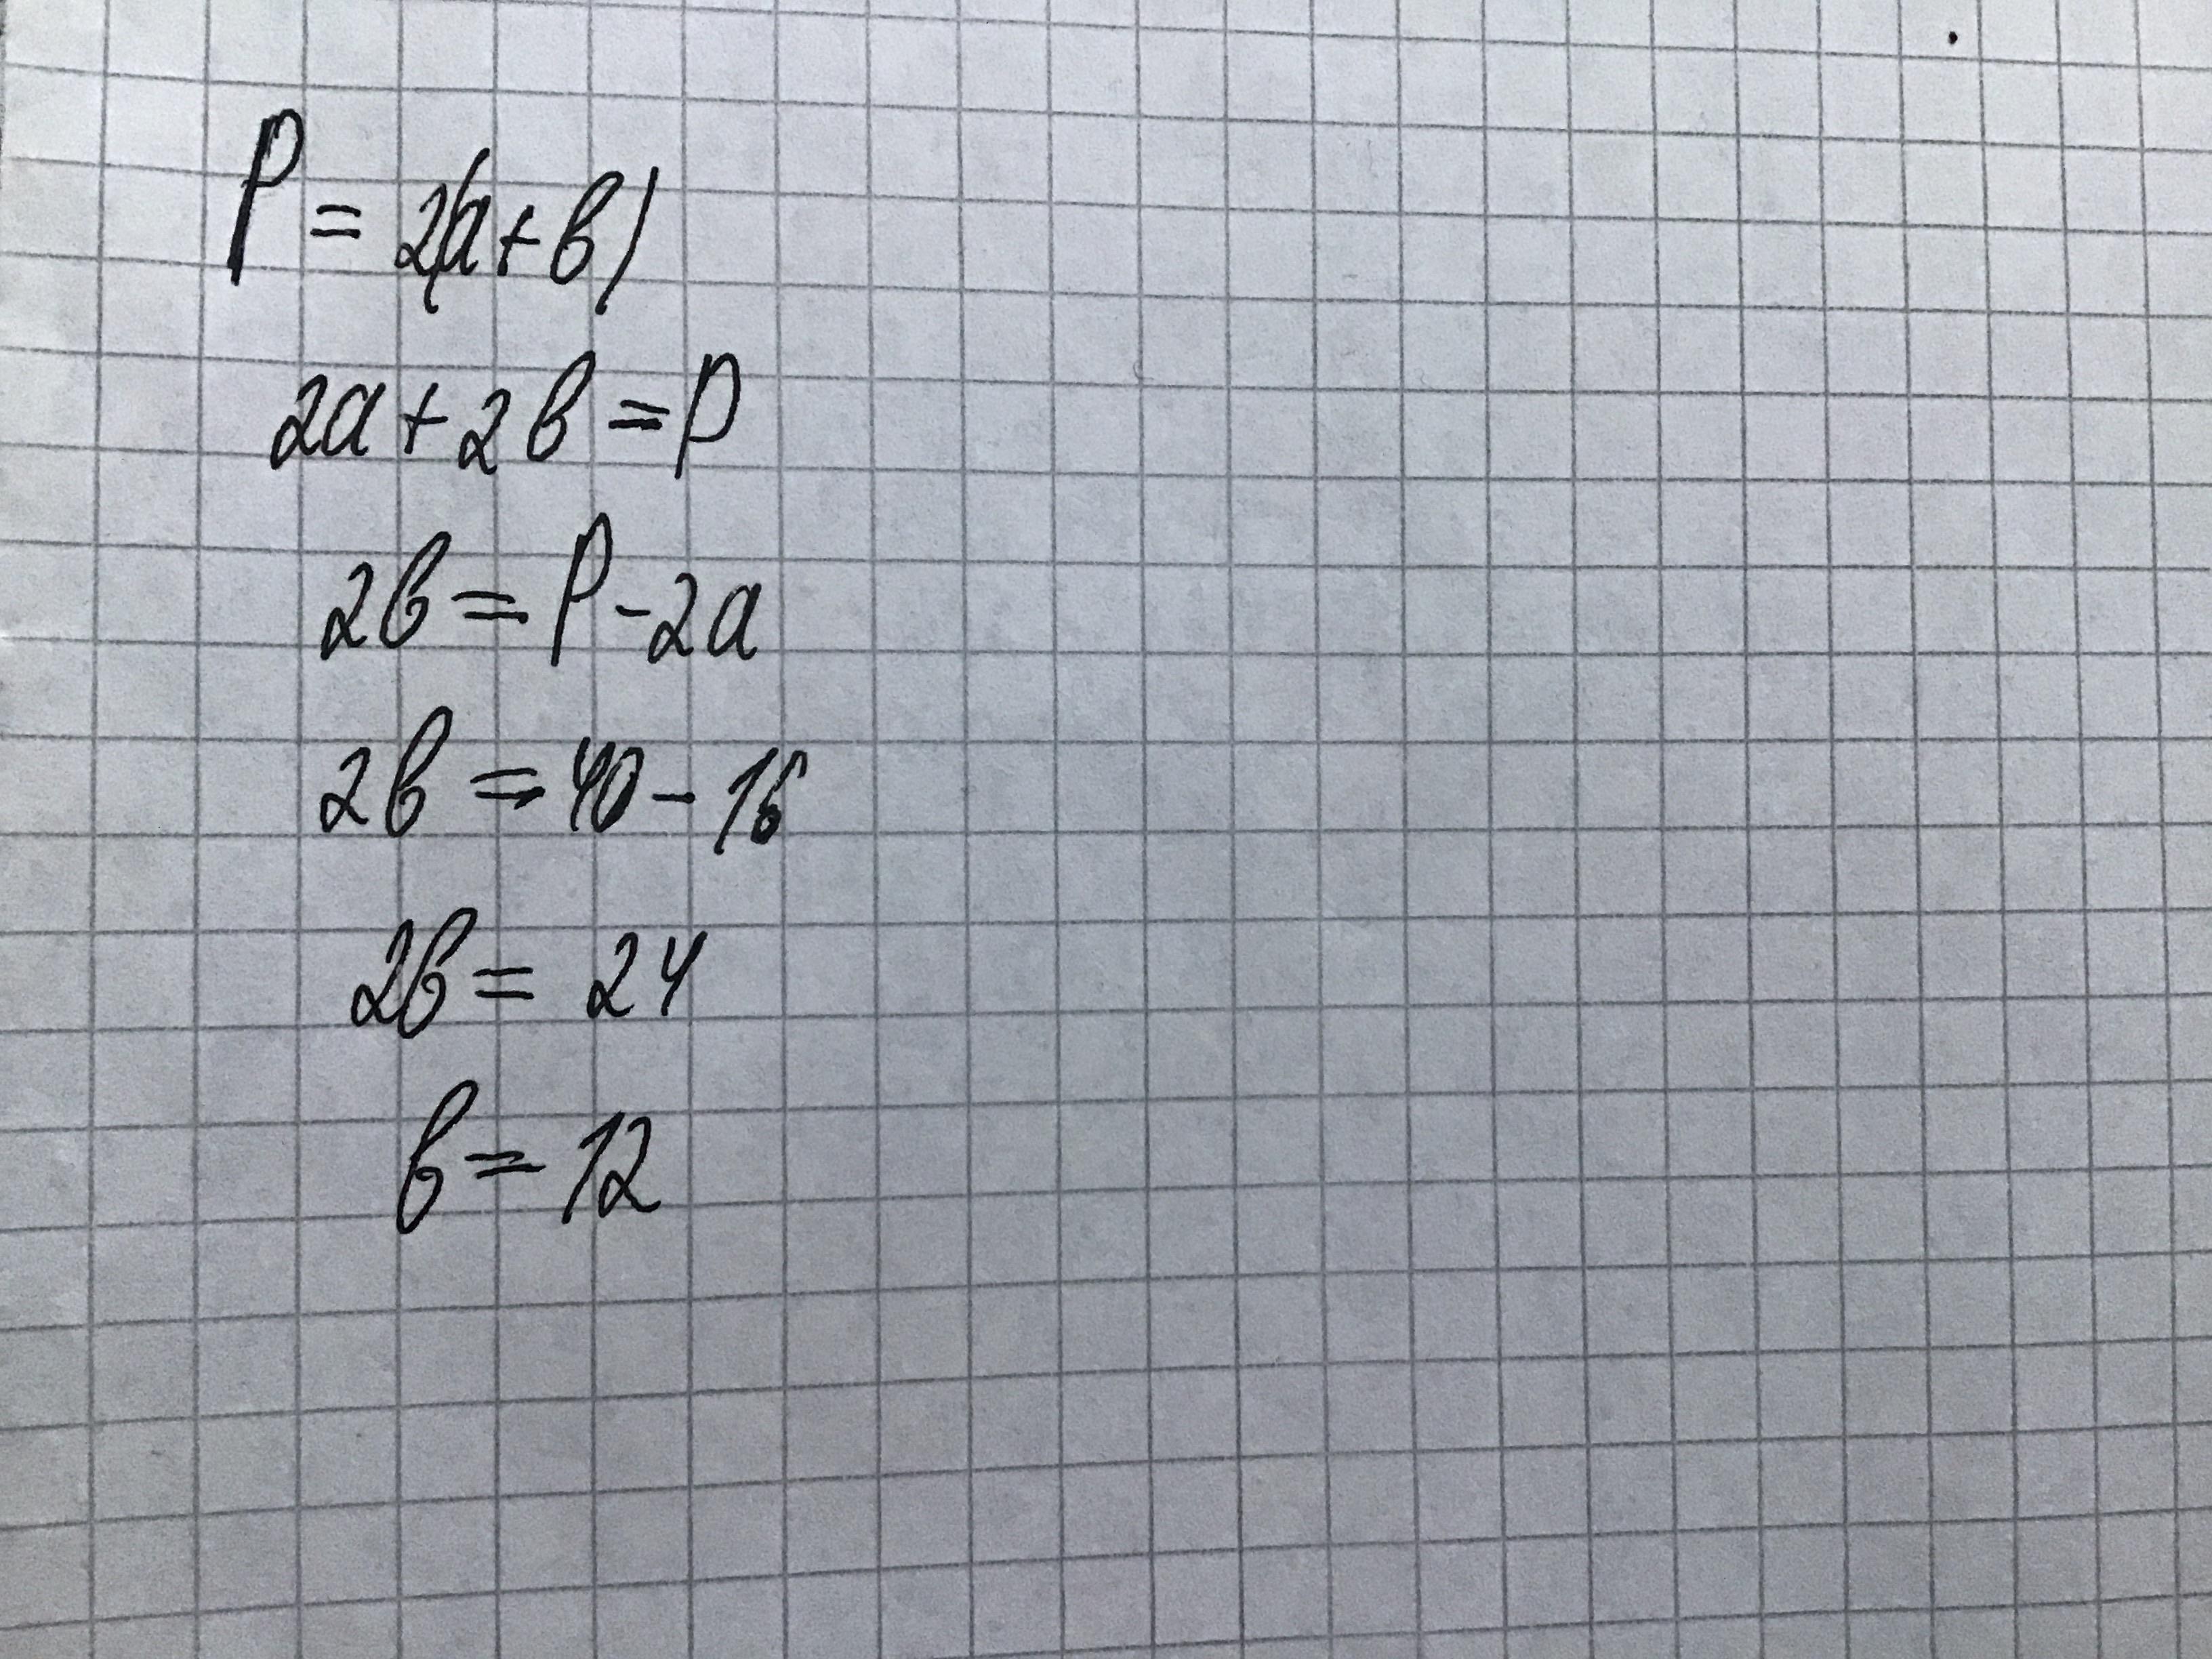 P = 2(a+b)
2a + 2b = P
2b = P - 2a
2b = 40 - 16
2b = 24
b = 12